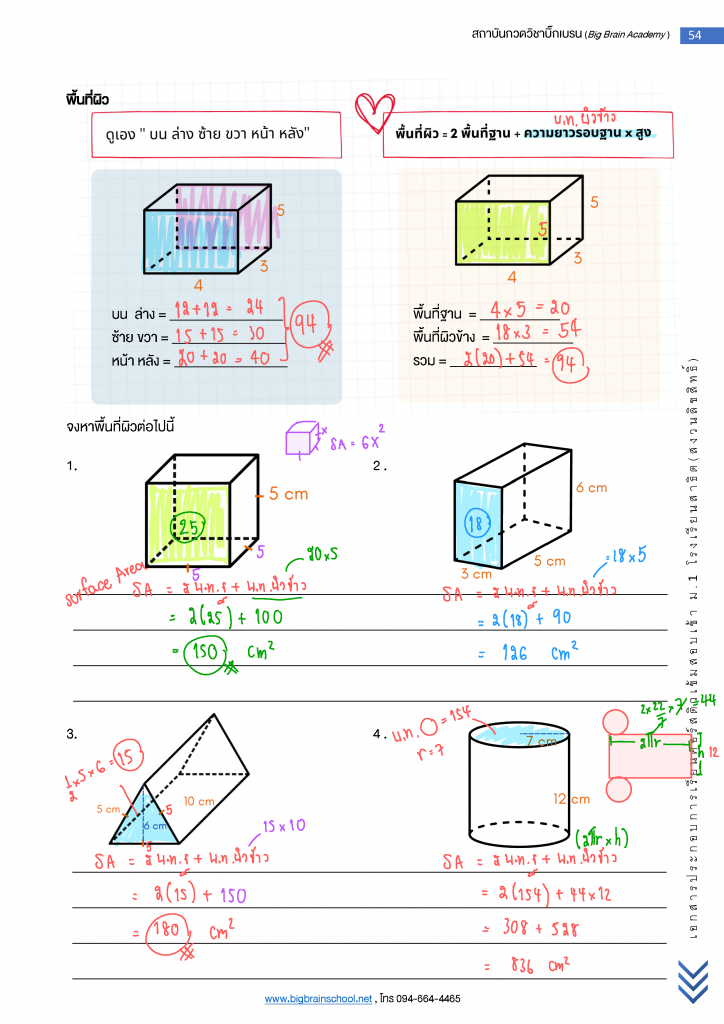 สถาบันกวดวิชาบิ๊กเบรน (Big Brain Academy) 54
พื้นที่ผิว
ดูเอง " บน ล่าง ซ้าย ขวา หน้า หลัง"
พ.ท. ผิวข้าง
พื้นที่ผิว = 2 พื้นที่ฐาน + ความยาวรอบฐาน x สูง
5
3
4
5
5
3
4
บน ล่าง = 12+12 = 24
ซ้าย ขวา = 15+15 = 30
หน้า หลัง = 20+20 = 40
94
พื้นที่ฐาน = 4×5 = 20
พื้นที่ผิวข้าง = 18×3 = 54
รวม = 2(20)+54 = 94
จงหาพื้นที่ผิวต่อไปนี้
x
SA = 6x²
1.
5 cm
25
5
5
20×5
Surface Area
SA = 2 พ.ท.ฐ + พ.ท.ผิวข้าง
= 2(25) + 100
= 150 cm²
2.
6 cm
18
5 cm
3 cm
= 18×5
SA = 2 พ.ท.ฐ + พ.ท.ผิวข้าง
= 2(18) + 90
= 126 cm²
3.
½×5×6 = 15
10 cm
5 cm
5
6 cm
5
15×10
SA = 2 พ.ท.ฐ + พ.ท.ผิวข้าง
= 2(15) + 150
= 180 cm²
4.
พ.ท. ○ = 154
r = 7
7 cm
12 cm
2×22/7×7 = 44
2πr
h
12
(2πr×h)
SA = 2 พ.ท.ฐ + พ.ท.ผิวข้าง
= 2(154) + 44×12
= 308 + 528
= 836 cm²
เอกสารประกอบการเรียนคอร์สติวเข้มสอบเข้า ม.1 โรงเรียนสาธิต(สงวนลิขสิทธิ์)
www.bigbrainschool.net , โทร 094-664-4465